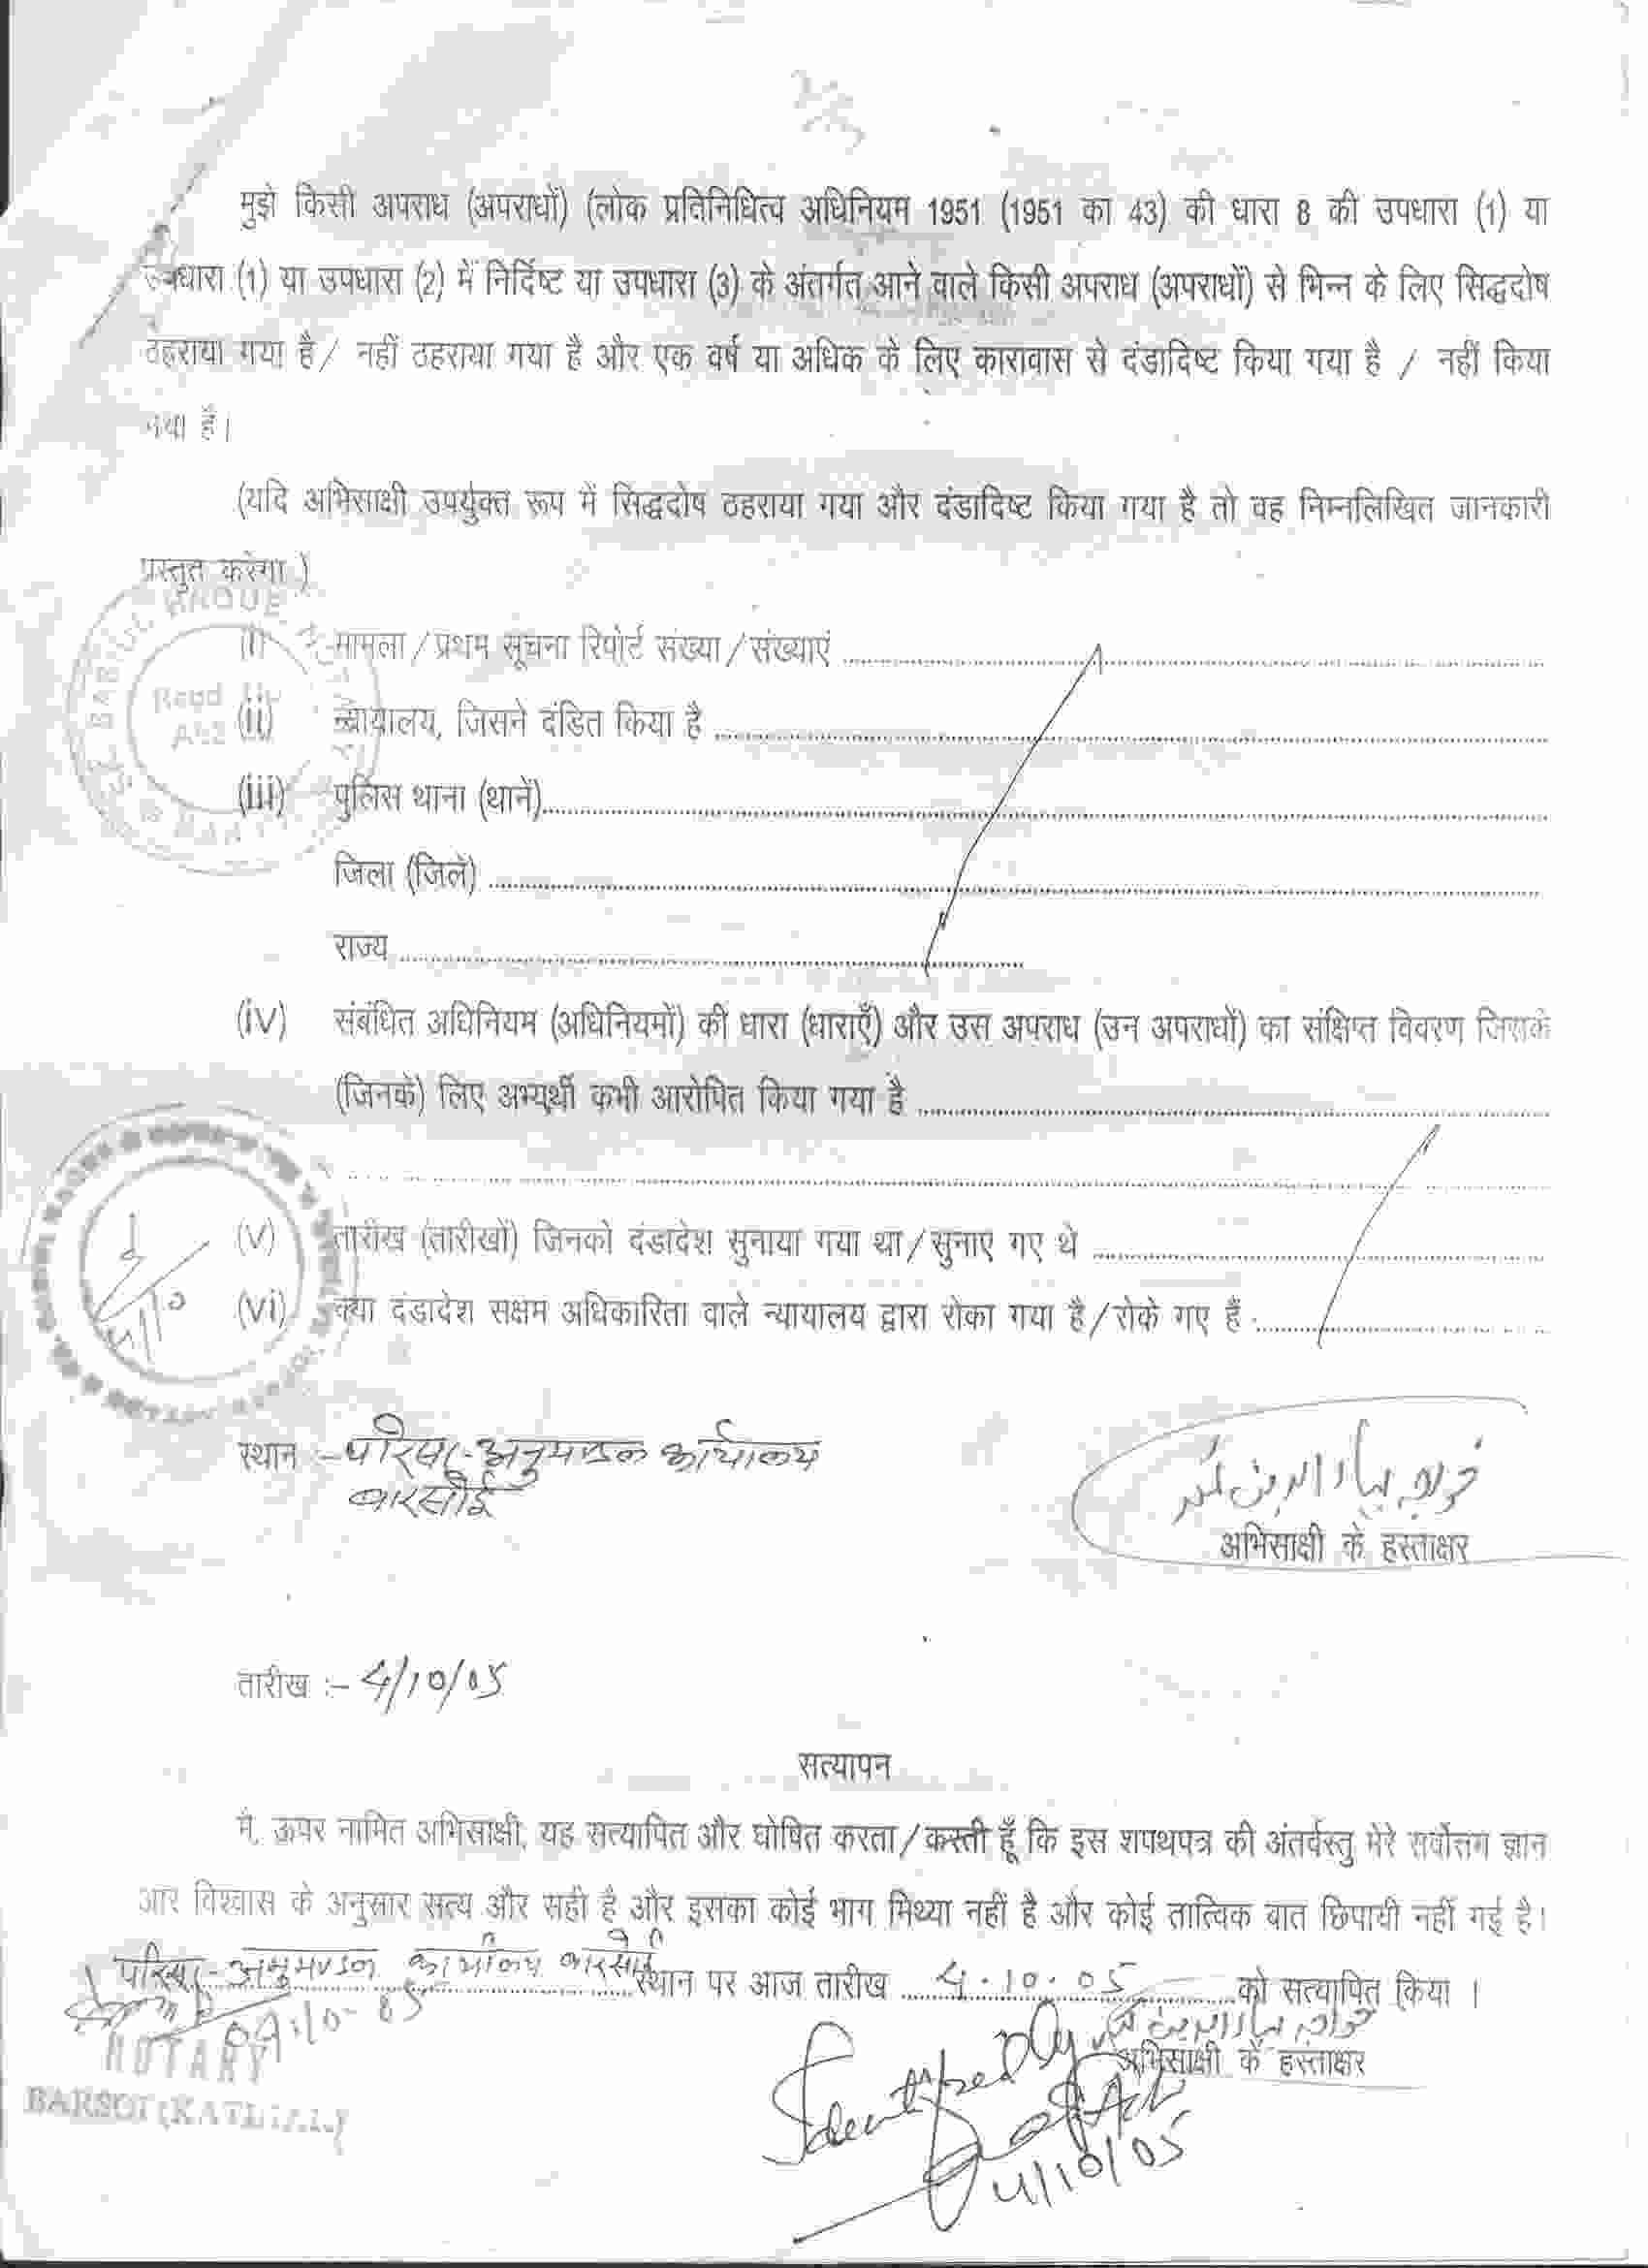 मुझे किसी अपराध (अपराधों) (लोक प्रतिनिधित्व अधिनियम 1951 (1951 का 43) की धारा 8 की उपधारा (1) या
उपधारा (1) या उपधारा (2) में निर्दिष्ट या उपधारा (3) के अंतर्गत आने वाले किसी अपराध (अपराधों) से भिन्न के लिए सिद्धदोष
ठहराया गया है / नहीं ठहराया गया है और एक वर्ष या अधिक के लिए कारावास से दंडादिष्ट किया गया है / नहीं किया
गया है।
(यदि अभिसाक्षी उपर्युक्त रूप में सिद्धदोष ठहराया गया और दंडादिष्ट किया गया है तो वह निम्नलिखित जानकारी
प्रस्तुत करेगा.)
(i) मामला/प्रथम सूचना रिपोर्ट संख्या/संख्याएं
(ii) न्यायालय, जिसने दंडित किया है
(iii) पुलिस थाना (थानें)
जिला (जिले)
राज्य
(iv) संबंधित अधिनियम (अधिनियमों) की धारा (धाराएँ) और उस अपराध (उन अपराधों) का संक्षिप्त विवरण जिसके
(जिनके) लिए अभ्यर्थी कभी आरोपित किया गया है
(v) तारीख (तारीखों) जिनको दंडादेश सुनाया गया था/सुनाए गए थे
(vi) क्या दंडादेश सक्षम अधिकारिता वाले न्यायालय द्वारा रोका गया है/रोके गए हैं
स्थान :- परिसर-अनुमण्डल कार्यालय
बारसोई
अभिसाक्षी के हस्ताक्षर
तारीख :- 4/10/05
सत्यापन
मैं, ऊपर नामित अभिसाक्षी, यह सत्यापित और घोषित करता/करती हूँ कि इस शपथपत्र की अंतर्वस्तु मेरे सर्वोत्तम ज्ञान
और विश्वास के अनुसार सत्य और सही है और इसका कोई भाग मिथ्या नहीं है और कोई तात्विक बात छिपायी नहीं गई है।
परिसर-अनुमण्डल कार्यालय बारसोई स्थान पर आज तारीख 4.10.05 को सत्यापित किया ।
अभिसाक्षी के हस्ताक्षर
NOTARY
4/10/05